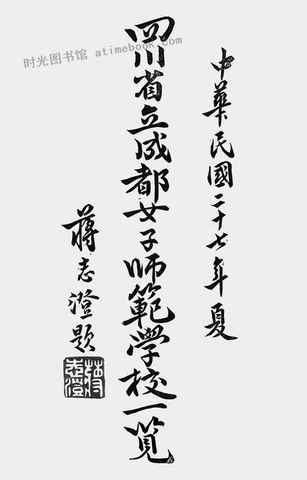 时光图书馆 atimebook.com
中華民國二十七年夏
四川省立成都女子师範學校一覽
蒋志澄題
蒋志澄